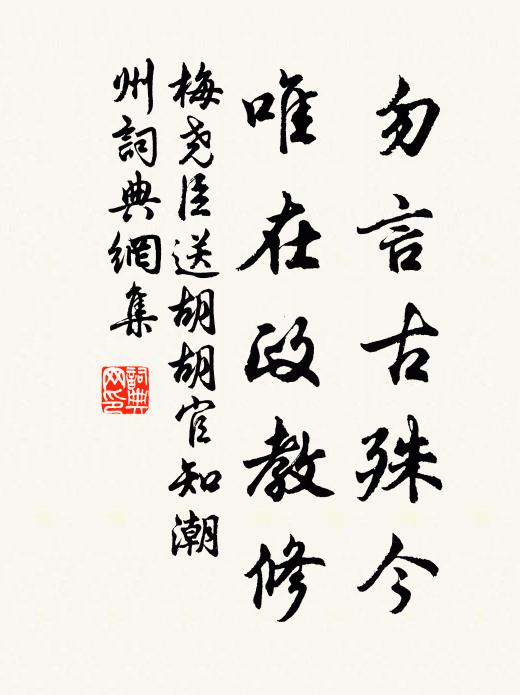 勿言古殊今
唯在政教修
梅尧臣送胡胡官知潮
州詞典網集
詞典
网印